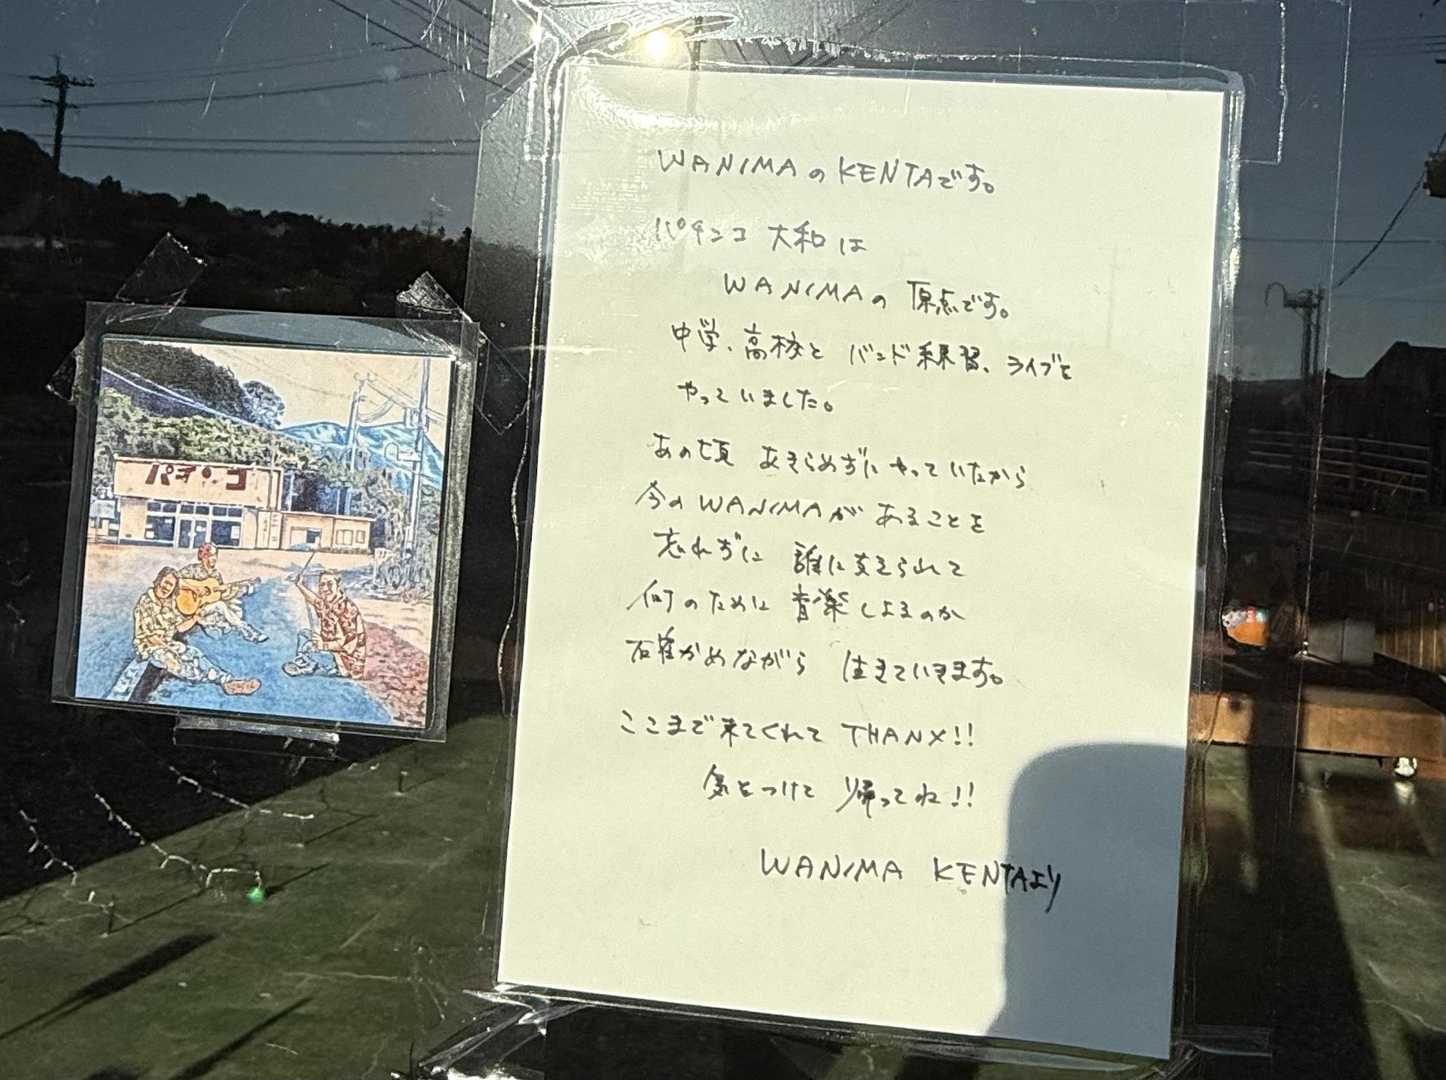 パチンコ
WANIMAのKENTAです。
パチンコ 大和は
WANIMAの 原点です。
中学、高校と バンド練習、ライブを
やっていました。
あの頃 あきらめずに やっていたから
今のWANIMAが あることを
忘れずに 誰に支えられて
何のために 音楽しよるのか
確かめながら 生きていきます。
ここまで来てくれて THANX!!
気をつけて 帰ってね!!
WANIMA KENTAより